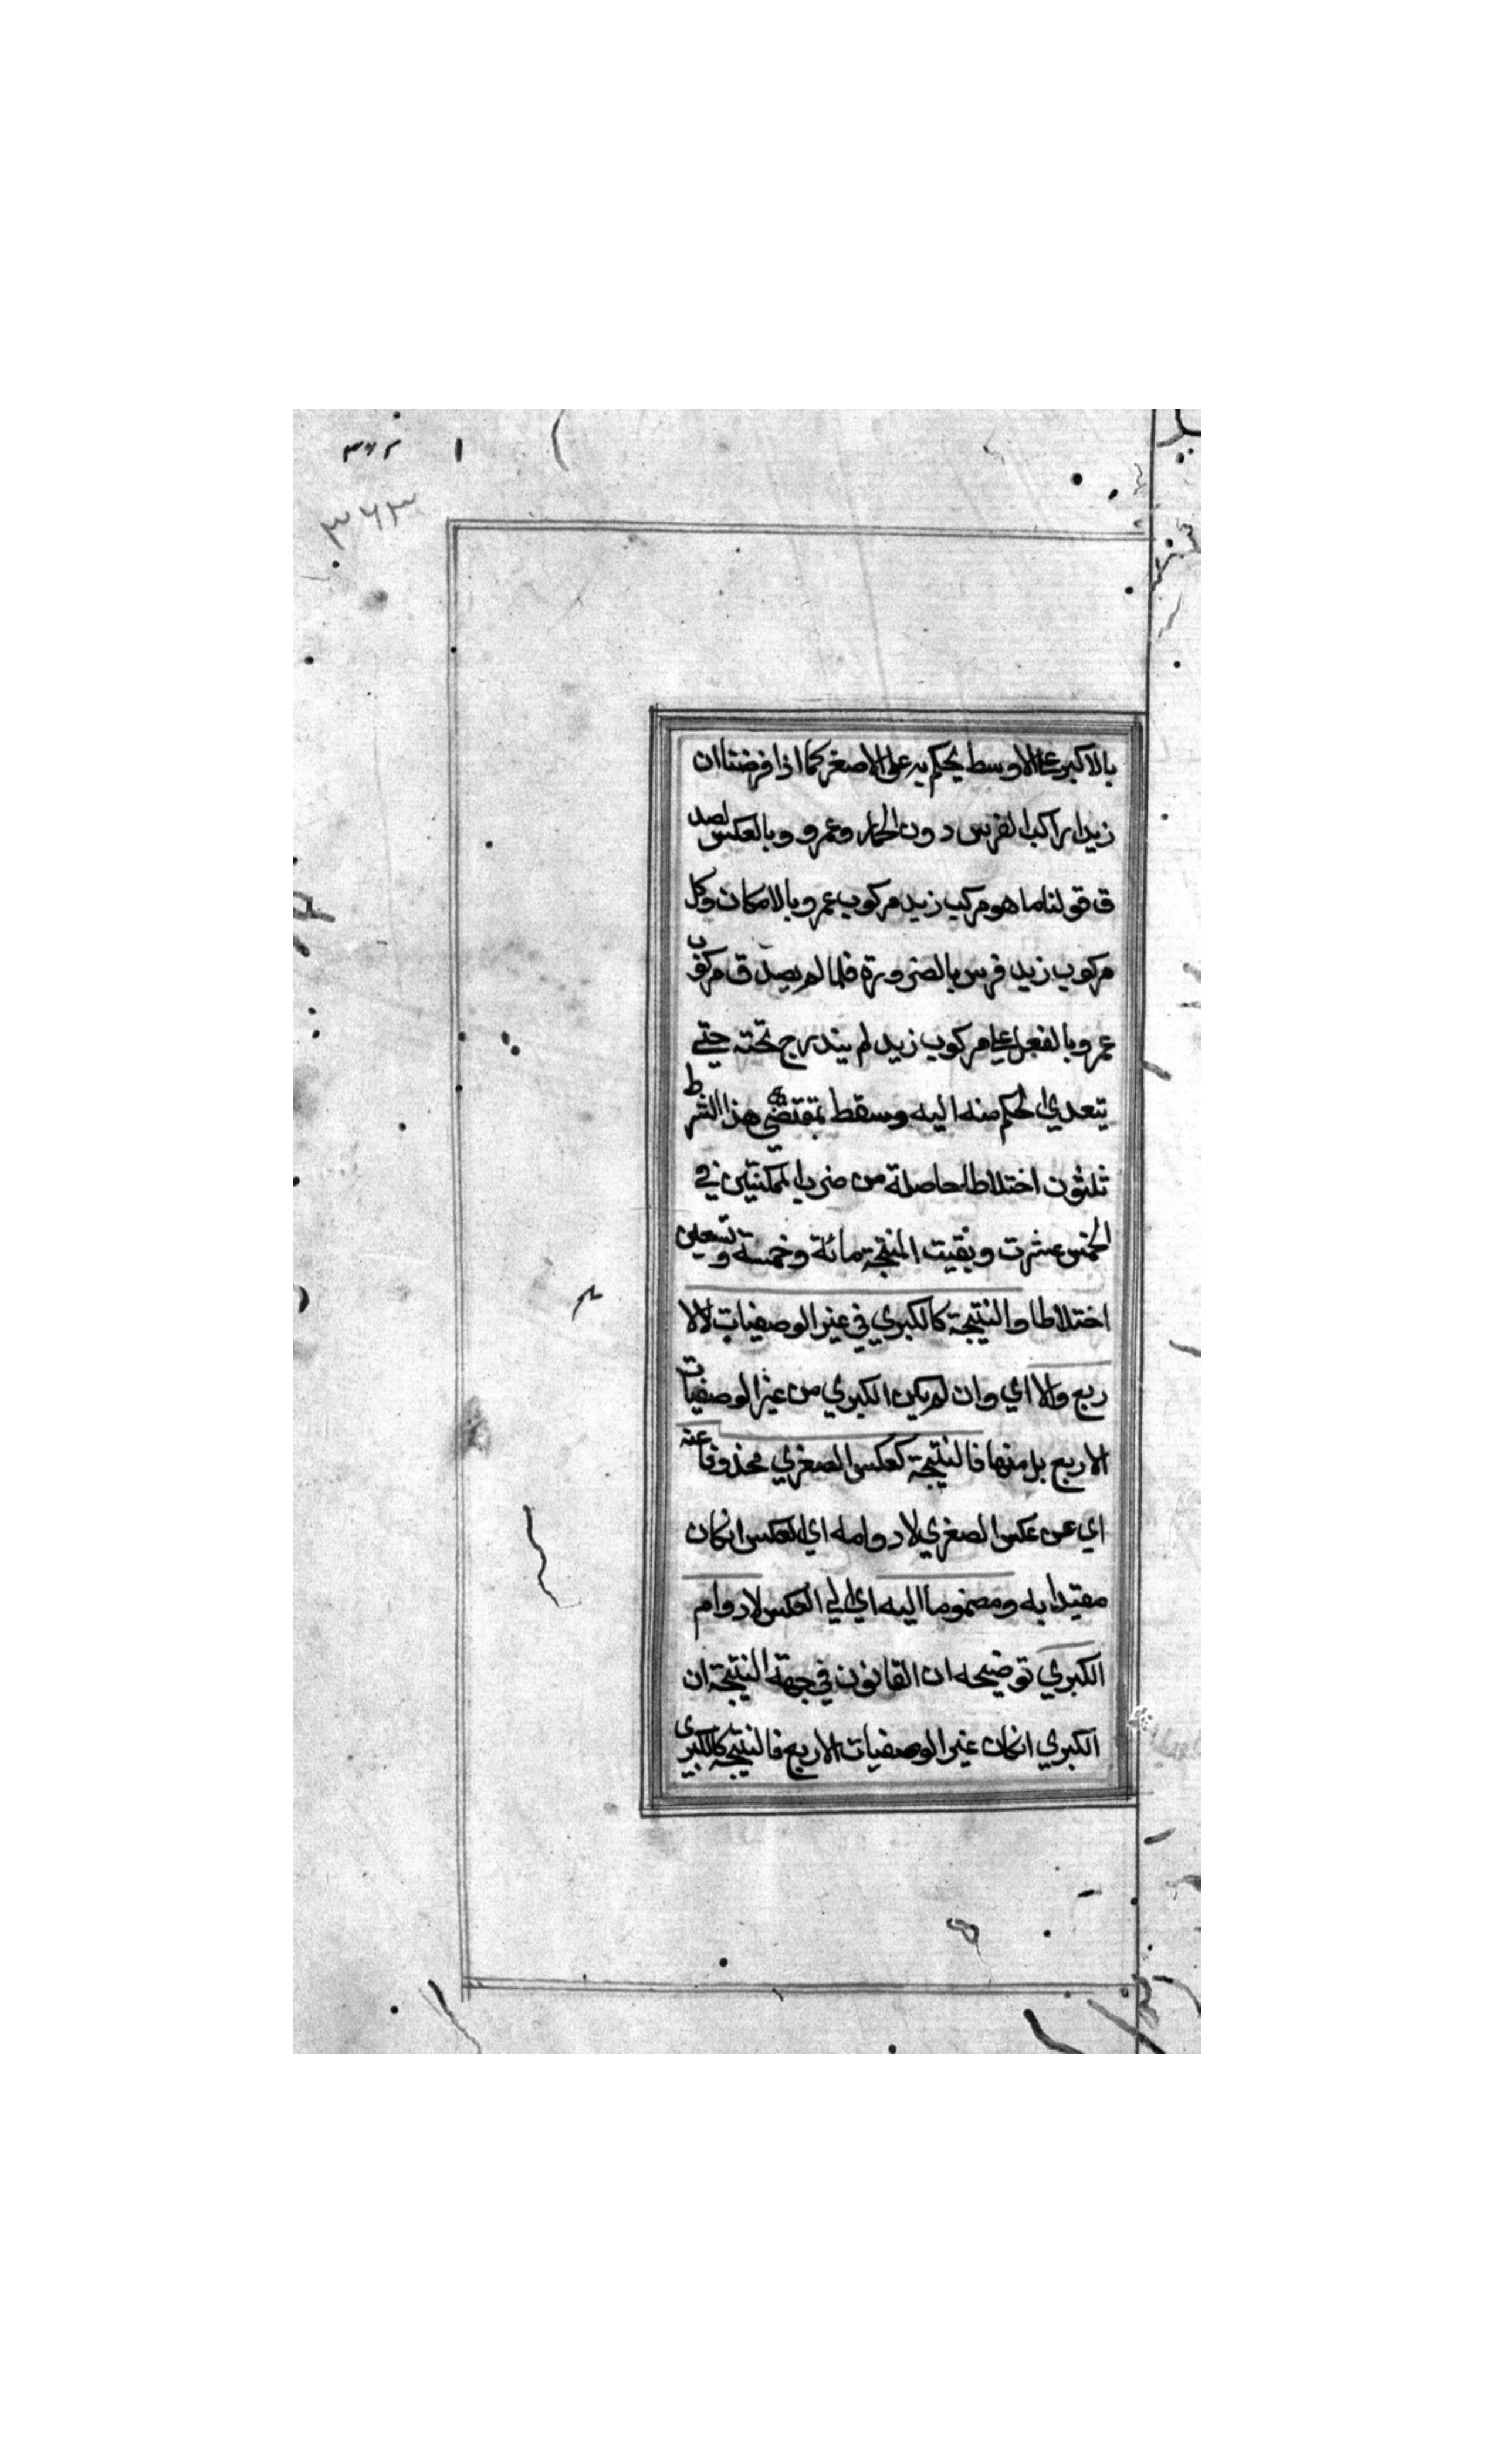 ٣٦٢
٣٦٣
بالاكبر على الاوسط يحكم به على الاصغر كما اذا فرضنا ان
زيدا راكب الفرس دون الحمار وعمرو وبالعكس لصد
ق قولنا ما هو مركب زيد مركوب عمرو بالامكان وكل
مركوب زيد فرس بالضرورة فلما لم يصدق مركوب
عمرو بالفعل على مركوب زيد لم يندرج تحته حتى
يتعدي الحكم منه اليه وسقط بمقتضي هذا الشرط
ثلثون اختلاطا حاصلة من ضرب الممكنتين في
الخمس عشرت وبقيت المنتجة مائة وخمسة وتسعين
اختلاطا والنتيجة كالكبري في غير الوصفيات لالا
ربع والا اي وان لم يكن الكبري من غير الوصفيات
الاربع بل منها فالنتيجة كعكس الصغري محذوفا عنه
اي عن عكس الصغري لادوامه اي العكس انكان
مقيدا به ومضموما اليه اي الي العكس لادوام
الكبري توضيحه ان القانون في جهة النتيجة ان
الكبري انكان غير الوصفيات الاربع فالنتيجة كالكبرى